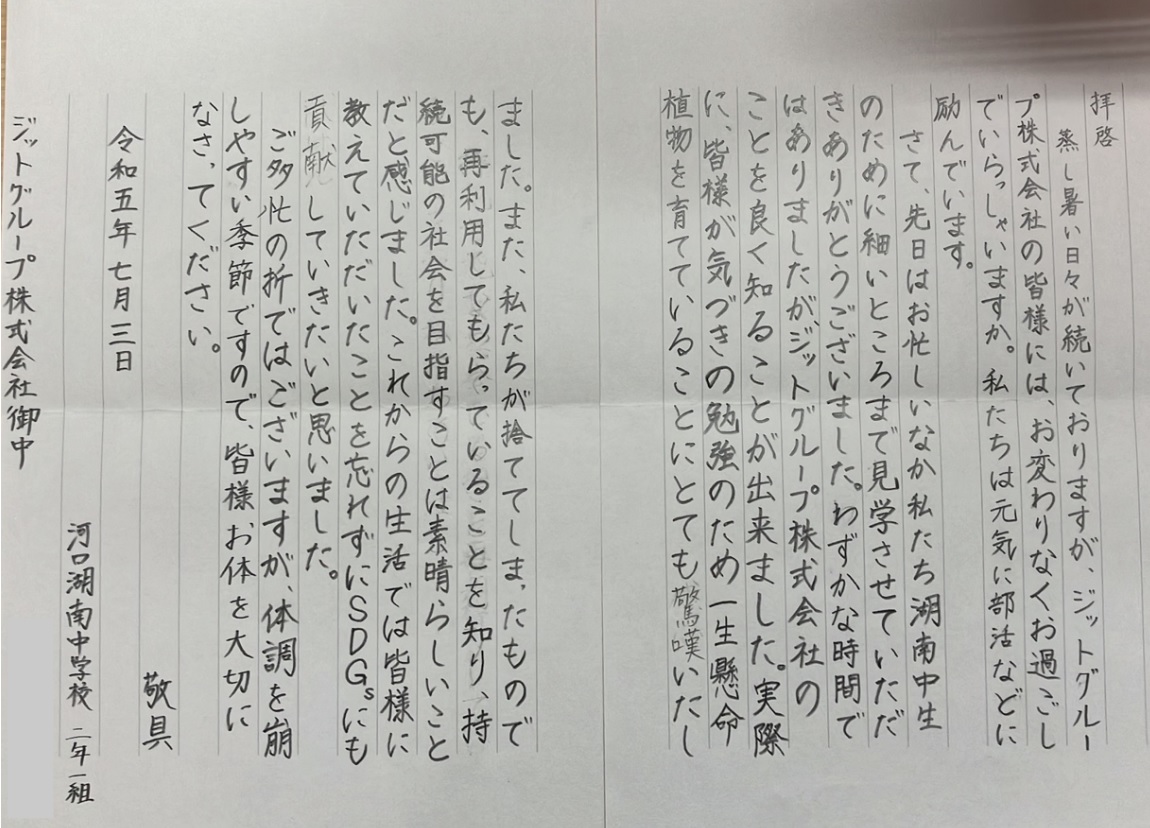 拝啓
蒸し暑い日々が続いておりますが、ジットグルー
プ株式会社の皆様には、お変わりなくお過ごし
でいらっしゃいますか。私たちは元気に部活などに
励んでいます。
さて、先日はお忙しいなか私たち湖南中生
のために細いところまで見学させていただ
きありがとうございました。わずかな時間で
はありましたがジットグループ株式会社の
ことを良く知ることが出来ました。実際
に、皆様が気づきの勉強のため一生懸命
植物を育てていることにとても驚嘆いたし
ました。また、私たちが捨ててしまったもので
も、再利用してもらっていることを知り、持
続可能の社会を目指すことは素晴らしいこと
だと感じました。これからの生活では皆様に
教えていただいたことを忘れずにSDGsにも
貢献していきたいと思いました。
ご多忙の折ではございますが、体調を崩
しやすい季節ですので、皆様お体を大切に
なさってください。
敬具
令和五年七月三日
河口湖南中学校 二年一組
ジットグループ株式会社御中